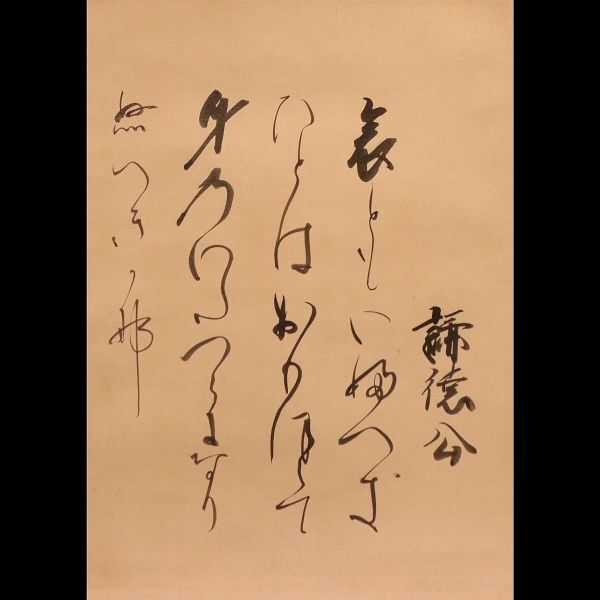 謙徳公
哀ともいふへき
ひとはおもほえて
身のいたつらになり
ぬへきかな